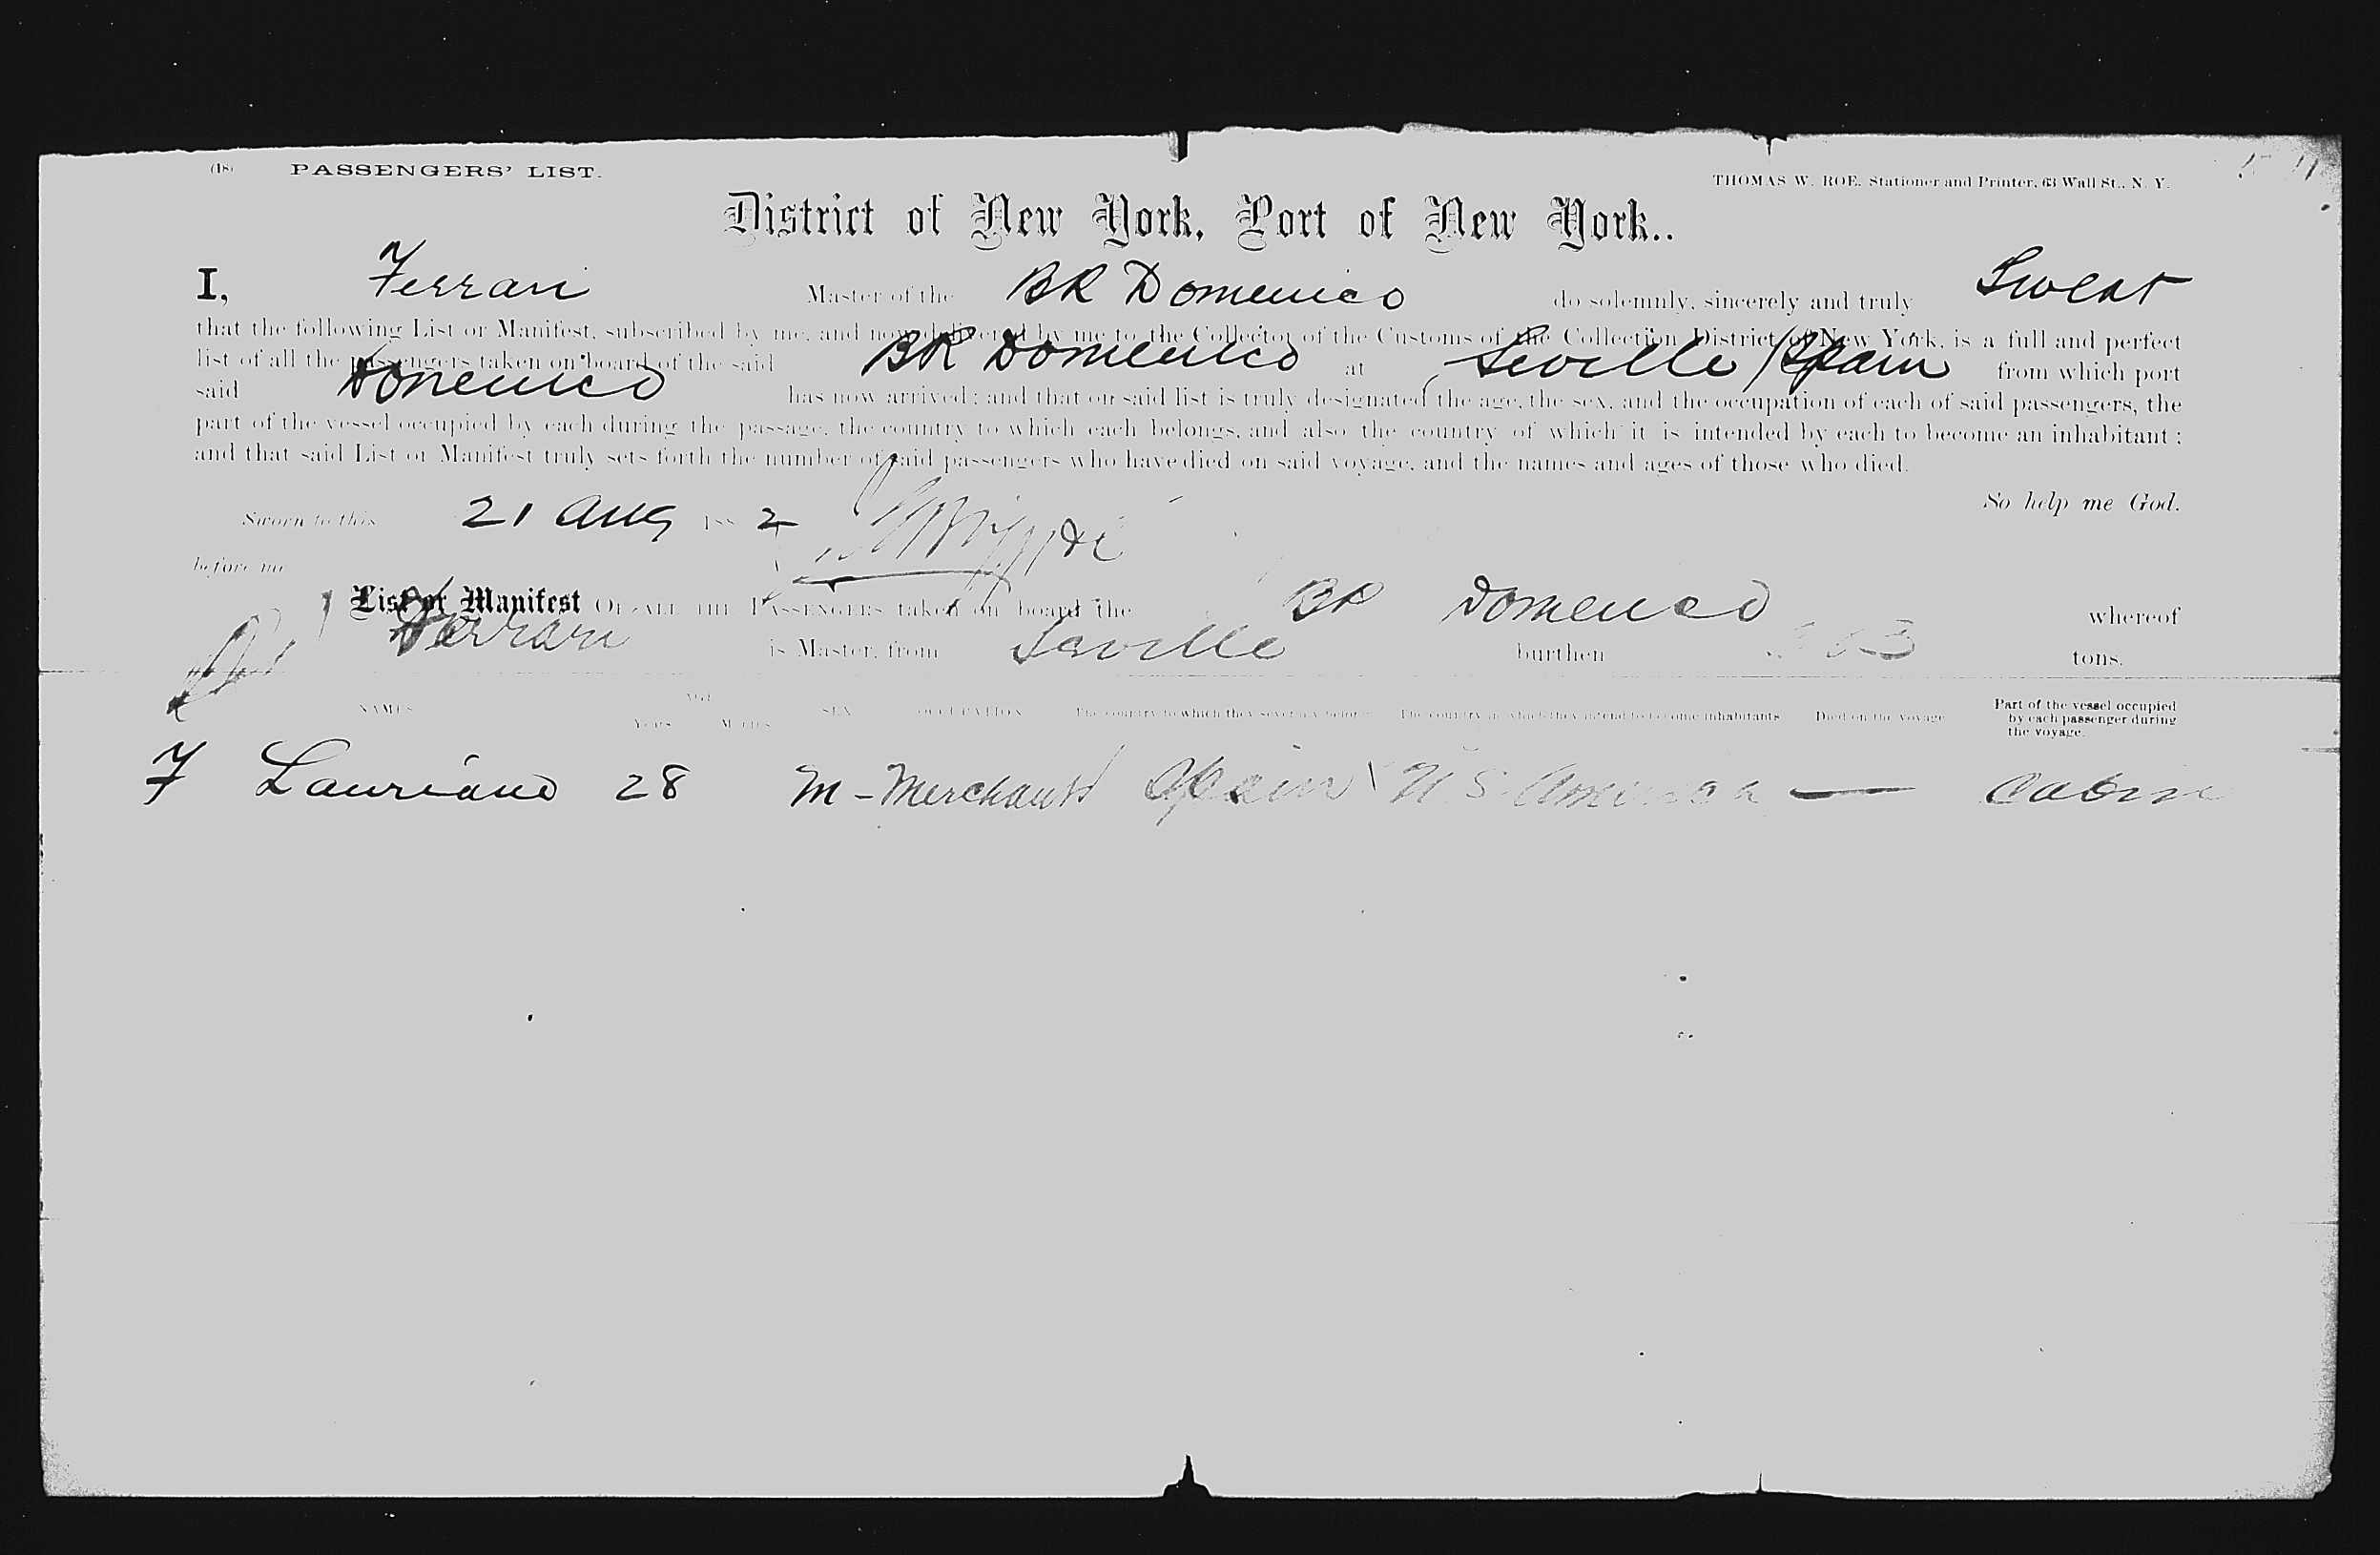 (18) PASSENGERS' LIST.
THOMAS W. ROE, Stationer and Printer, 63 Wall St., N. Y.
District of New York, Port of New York..
I, Ferrari Master of the BR Domenico do solemnly, sincerely and truly Swear
that the following List or Manifest, subscribed by me, and now delivered by me to the Collector of the Customs of the Collection District of New York, is a full and perfect
list of all the passengers taken on board of the said BR Domenico at Seville Spain from which port
said Domenico has now arrived; and that on said list is truly designated the age, the sex, and the occupation of each of said passengers, the
part of the vessel occupied by each during the passage, the country to which each belongs, and also the country of which it is intended by each to become an inhabitant;
and that said List or Manifest truly sets forth the number of said passengers who have died on said voyage, and the names and ages of those who died.
So help me God.
Sworn to this 21 Aug 188 2
before me
List or Manifest OF ALL THE PASSENGERS taken on board the BR Domenico whereof
Ferrari is Master, from Seville burthen tons.
NAMES AGE Years Months SEX OCCUPATION The country to which they severally belong The country in which they intend to become inhabitants Died on the voyage Part of the vessel occupied by each passenger during the voyage.
F Lauriano 28 M - Merchant Spain U S America — Cabin